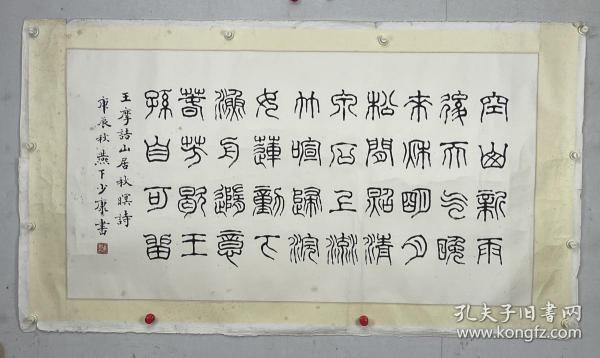 空山新雨
後天气晚
來秋明月
松間照清
泉石上流
竹喧歸浣
女蓮動下
漁舟隨意
春芳歇王
孫自可留
王摩詰山居秋暝詩
庚辰秋燕下少康書
孔夫子旧書网
www.kongfz.com